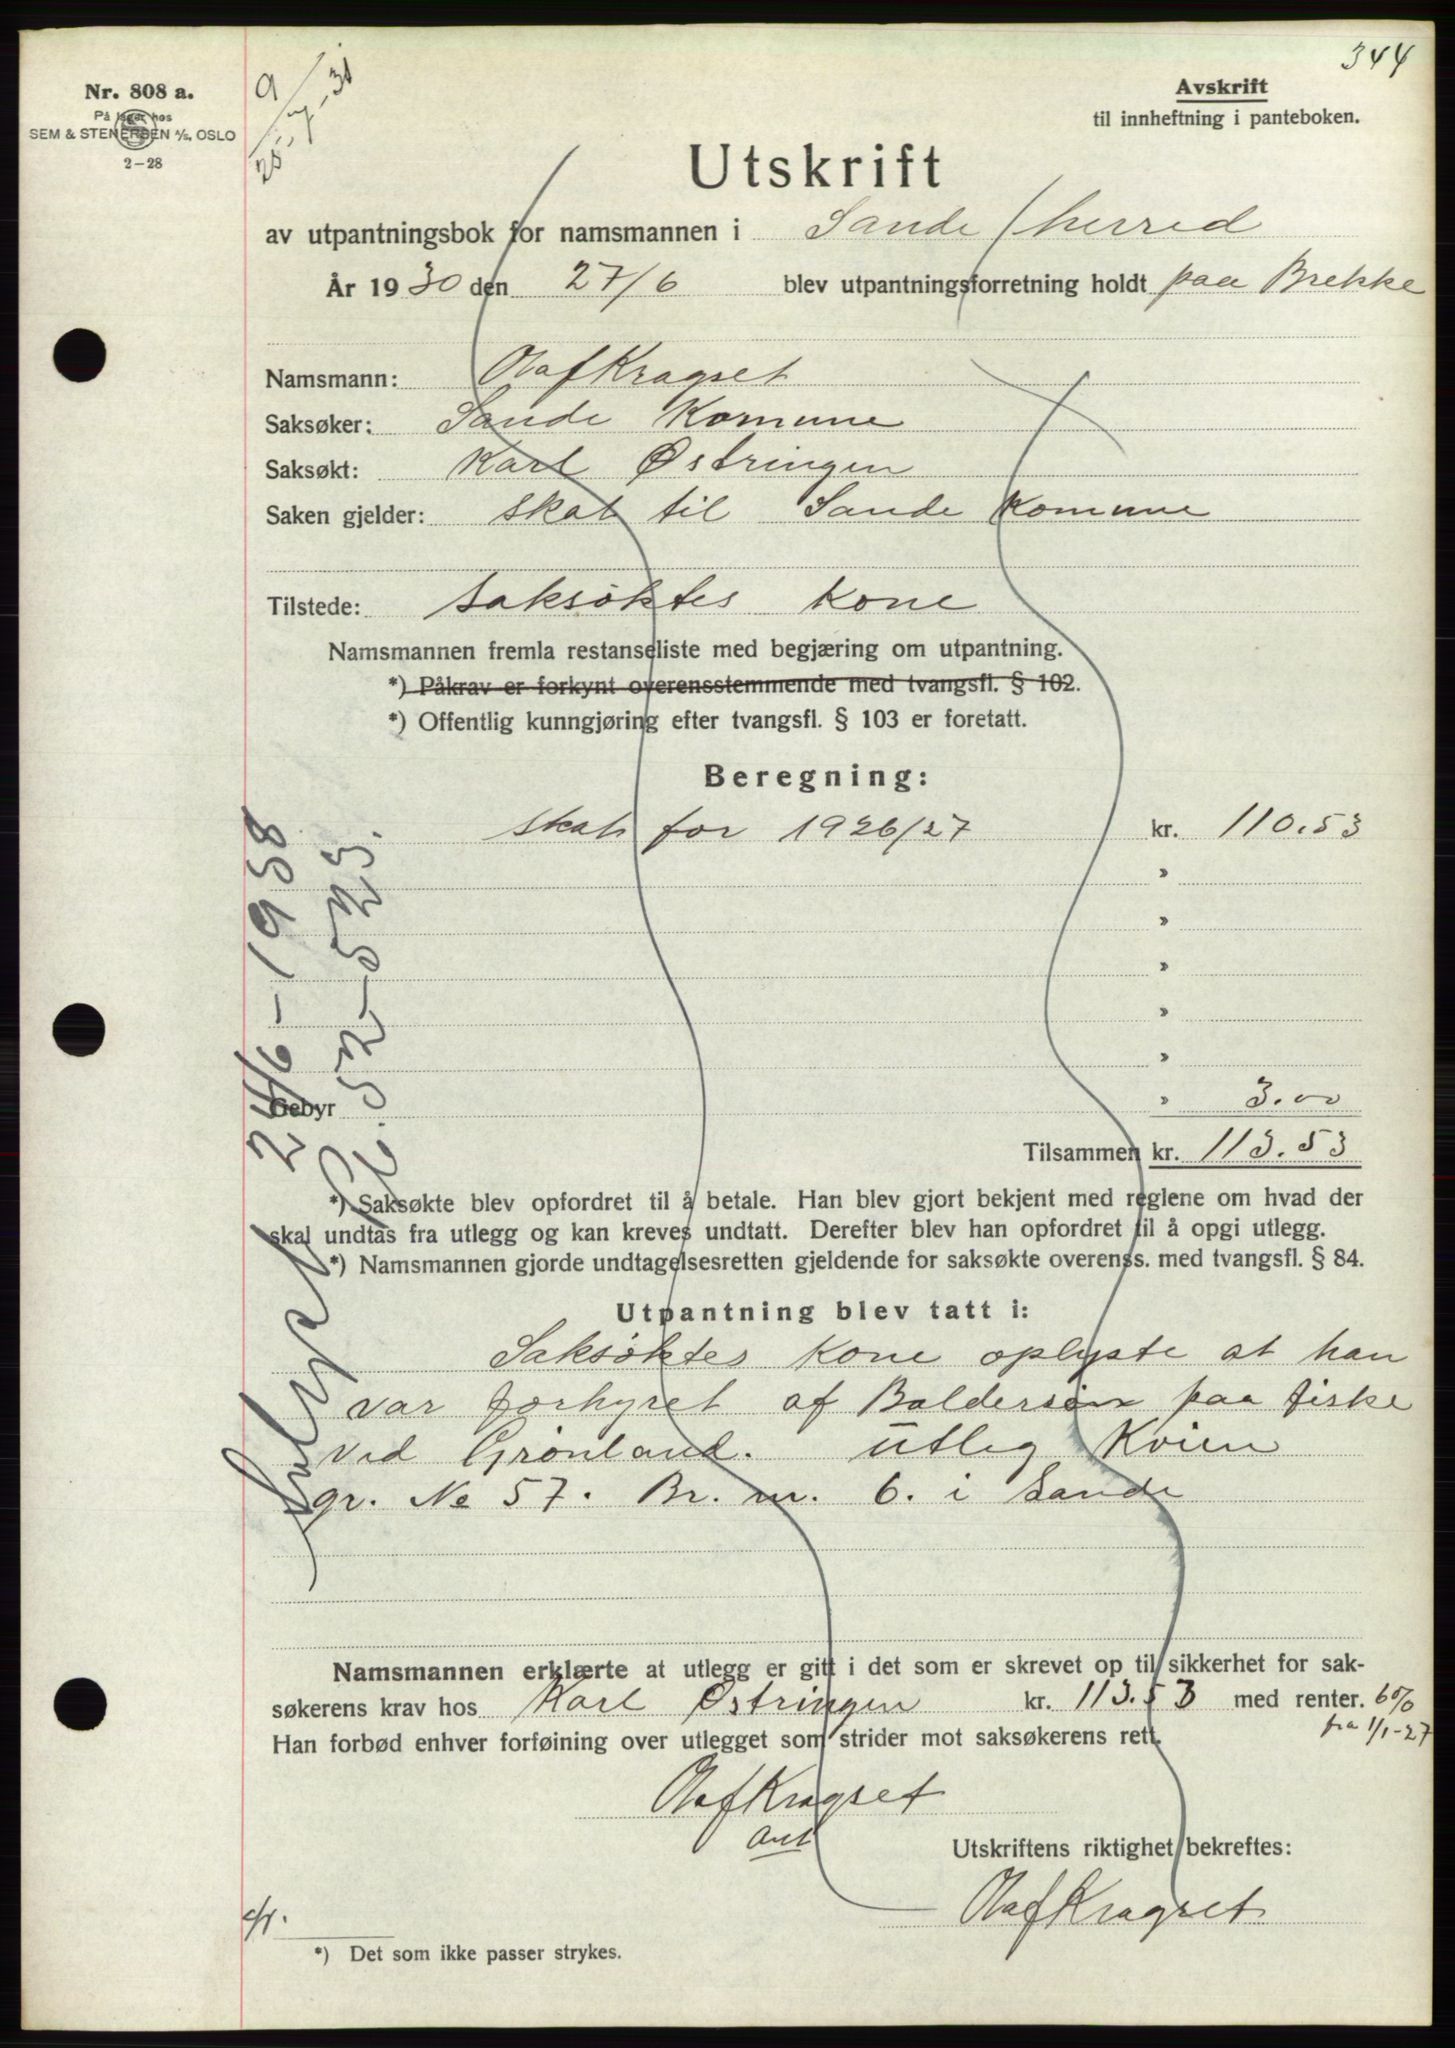 344
Nr. 808 a.
På lager hos
SEM & STENERSEN A/S, OSLO
2-28
9
Avskrift
til innheftning i panteboken.
Utskrift
av utpantningsbok for namsmannen i Sande herred
År 1930 den 27/6 blev utpantningsforretning holdt paa Brekke
Namsmann: Olaf Kragset
Saksøker: Sande Komune
Saksøkt: Karl Østringen
Saken gjelder: skat til Sande Komune
Tilstede: Saksøktes Kone
Namsmannen fremla restanseliste med begjæring om utpantning.
*) Påkrav er forkynt overensstemmende med tvangsfl. § 102.
*) Offentlig kunngjøring efter tvangsfl. § 103 er foretatt.
Beregning:
skat for 1926/27 kr. 110.53
»
»
»
»
»
Gebyr » 3.00
Tilsammen kr. 113.53
*) Saksøkte blev opfordret til å betale. Han blev gjort bekjent med reglene om hvad der
skal undtas fra utlegg og kan kreves undtatt. Derefter blev han opfordret til å opgi utlegg.
*) Namsmannen gjorde undtagelsesretten gjeldende for saksøkte overenss. med tvangsfl. § 84.
Utpantning blev tatt i:
Saksøktes Kone oplyste at han
var forhyret af Balderson paa fiske
ved Grønland. Utleg Kvien
gr. No 57. Br. nr. 6. i Sande
Namsmannen erklærte at utlegg er gitt i det som er skrevet op til sikkerhet for sak-
søkerens krav hos Karl Østringen kr. 113.53 med renter. 6%
fra 1/1-27
Han forbød enhver forføining over utlegget som strider mot saksøkerens rett.
Olaf Kragset
Utskriftens riktighet bekreftes:
Olaf Kragset
*) Det som ikke passer strykes.
Avlyst 24/6-1938